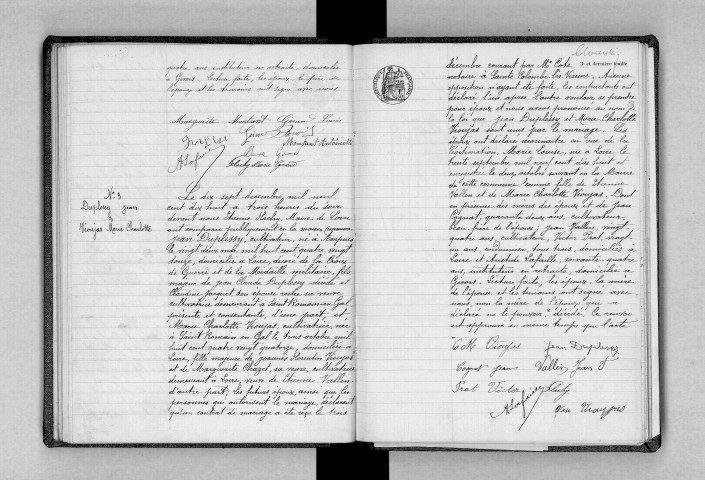 quatre ans, instituteur en retraite, domiciliés
à Givors. Lecture faite, les époux, le père de
l'épouse et les témoins ont signé avec nous
Marguerite Montvert Girond Louis
Alafaire
N° 3
Duplessy Jean
&
Viougas Marie Charlotte
Le dix sept décembre mil neuf
cent dix huit à trois heures du soir
devant nous Etienne Flachy, Maire de Loire
ont comparu publiquement en la maison commune
Jean Duplessy, cultivateur, né à Ampuis
le vingt deux mai mil huit cent quatre vingt
douze, domicilié à Loire, décoré de la Croix
de Guerre et de la Médaille militaire, fils
majeur de Jean Claude Duplessy décédé et
Claudine Jacquet son épouse restée sa veuve
cultivatrice demeurant à Saint Romain en Gal
présente et consentante, d'une part; et
Marie Charlotte Viougas, cultivatrice, née
à Saint Romain en Gal le trois octobre mil
huit cent quatre vingt quatorze, domiciliée à
Loire, fille majeure de Joannès Florentin Viougas
et de Marguerite Chazet, sa veuve, cultivatrice
demeurant à Loire, veuve de Etienne Vallin
d'autre part; les futurs époux, ainsi que les
personnes qui autorisent le mariage, déclarent
qu'un contrat de mariage a été reçu le trois
3e et dernière feuille
décembre courant par Me Cote
notaire à Sainte Colombe les Vienne. Aucune
opposition n'ayant été faite, les contractants ont
déclaré l'un après l'autre vouloir se prendre
pour époux et nous avons prononcé au nom de
la loi que Jean Duplessy et Marie Charlotte
Viougas sont unis par le mariage. Les
époux ont déclaré reconnaître en vue de la
légitimation, Marie Louise, née à Loire le
trente septembre mil neuf cent dix huit et
enregistrée le deux octobre suivant en la Mairie
de cette commune comme fille de Etienne
Vallin et de Marie Charlotte Viougas. Dont
en présence des mères des époux et de Jean
Cognat, quarante deux ans, cultivateur,
beau frère de l'époux, Jean Vallin, vingt-
quatre ans, cultivateur, Victor Prat, vingt-
un ans, tous trois domiciliés à
Loire et Aristide Lafaille, soixante quatre
ans, instituteur en retraite, domicilié à
Givors. Lecture faite, les époux, la mère
de l'épouse et les témoins ont signé avec
nous, non la mère de l'époux qui a
déclaré ne le pouvoir
est approuvé en même temps que l'acte
C M Viougas Jean Duplessy
Cognat Jean Vallin Jean
Prat Victor Flachy